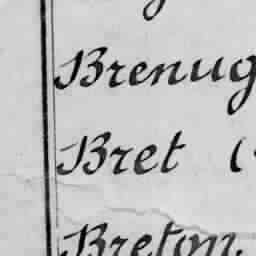 Brenug
Bret (
Breton